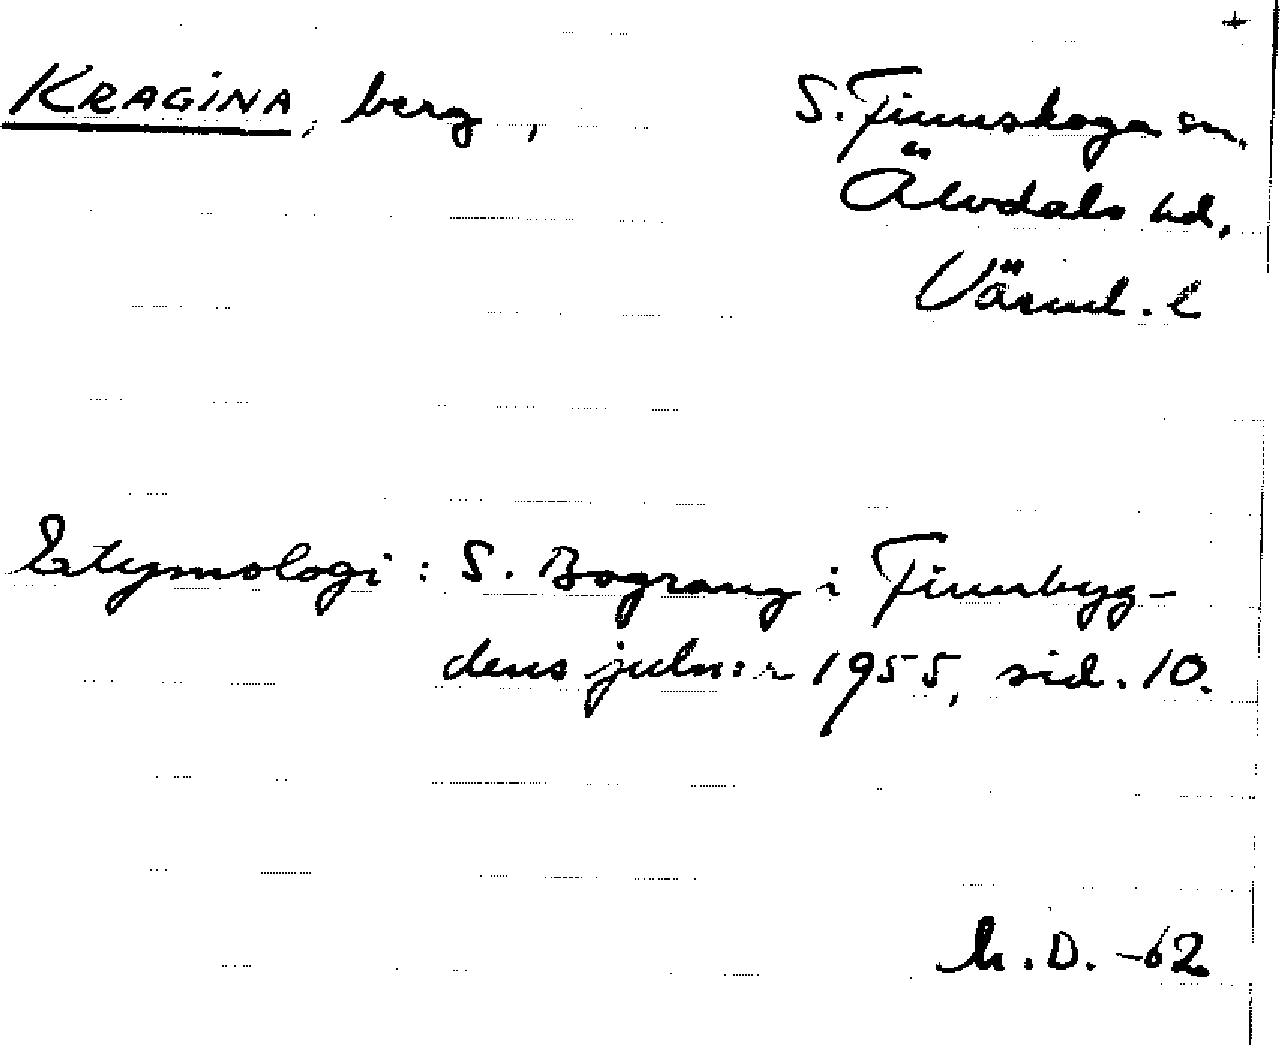 +
KRAGINA, berg, S. Finnskoga sn.
Älvdals hd.
Värml. l
Etymologi: S. Bograng i Finnbyg-
dens juln:r 1955, sid. 10.
M.D. -62